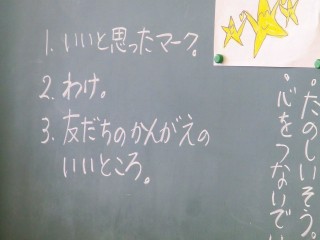 1. いいと思ったマーク。
2. わけ。
3. 友だちのかんがえの
いいところ。
・たのしいそう。
・心をつないでい